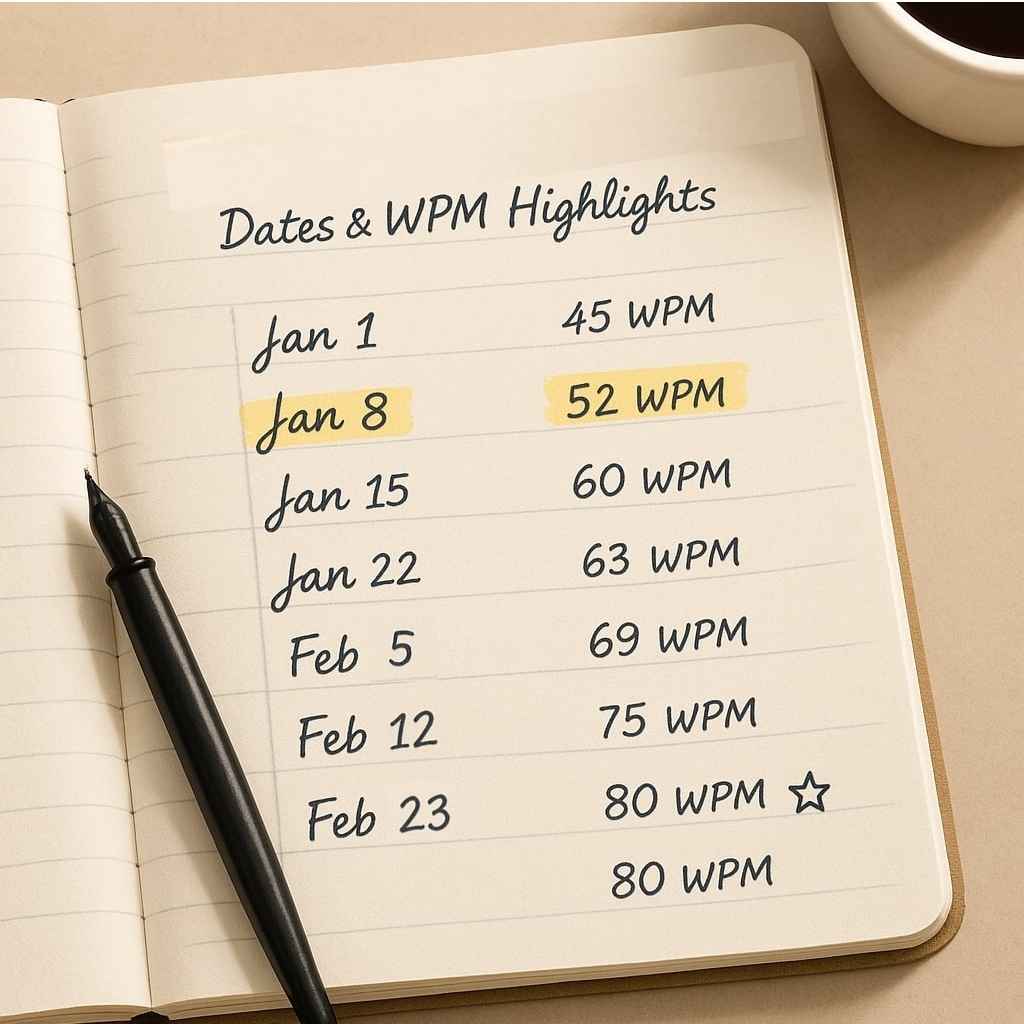 Dates & WPM Highlights
Jan 1 45 WPM
Jan 8 52 WPM
Jan 15 60 WPM
Jan 22 63 WPM
Feb 5 69 WPM
Feb 12 75 WPM
Feb 23 80 WPM ☆
80 WPM